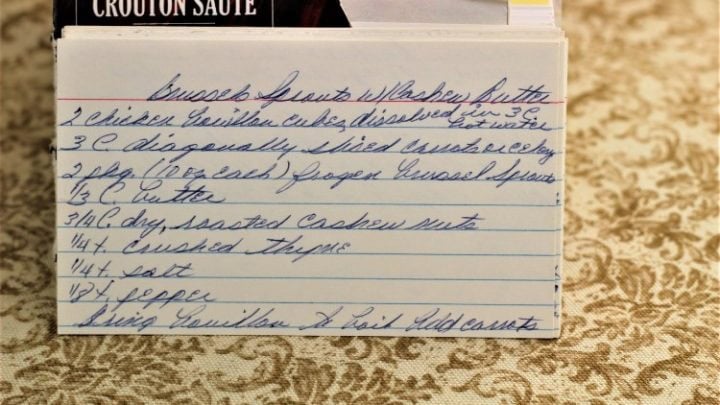 CROUTON SAUTÉ
Brussels Sprouts w/Cashew Butter
2 chicken bouillon cubes, dissolved in 3 C.
hot water
3 C. diagonally sliced carrots or celery
2 pkg. (10 oz each) frozen brussel Sprouts
1/3 C. butter
3/4 C. dry, roasted cashew nuts
1/4 t. crushed thyme
1/4 t. salt
1/8 t. pepper
Bring bouillon to boil Add carrots